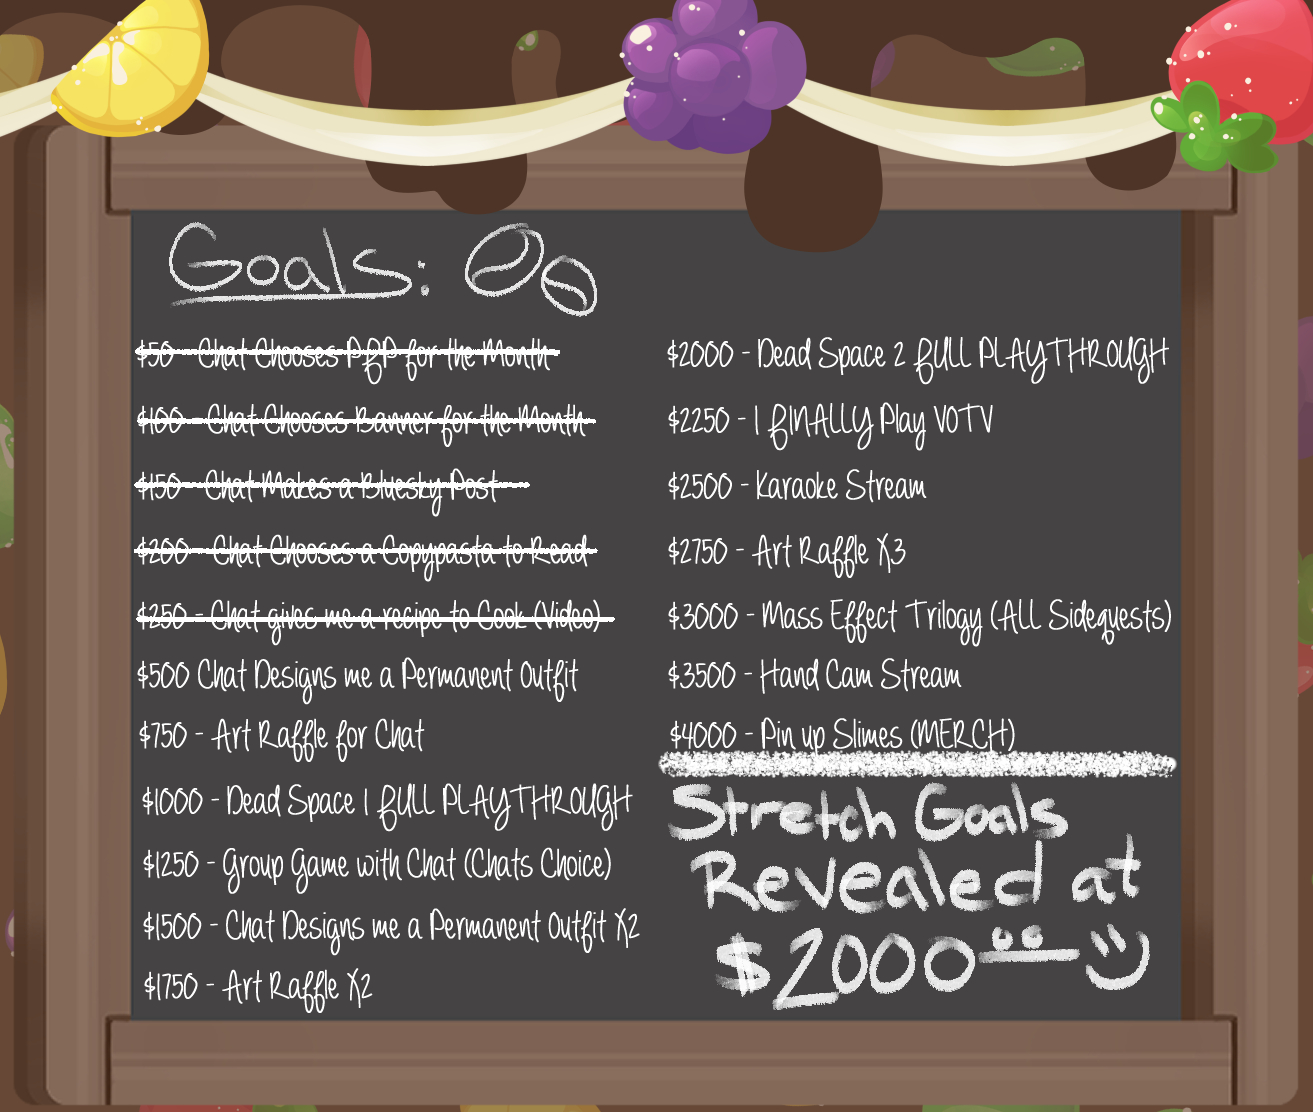 Goals:
$50 - Chat Chooses PFP for the Month
$100 - Chat Chooses Banner for the Month
$150 - Chat Makes a Bluesky Post
$200 - Chat Chooses a Copypasta to Read
$250 - Chat gives me a recipe to Cook (Video)
$500 Chat Designs me a Permanent Outfit
$750 - Art Raffle for Chat
$1000 - Dead Space 1 FULL PLAYTHROUGH
$1250 - Group Game with Chat (Chats Choice)
$1500 - Chat Designs me a Permanent Outfit X2
$1750 - Art Raffle X2
$2000 - Dead Space 2 FULL PLAYTHROUGH
$2250 - I FINALLY Play VOTV
$2500 - Karaoke Stream
$2750 - Art Raffle X3
$3000 - Mass Effect Trilogy (ALL Sidequests)
$3500 - Hand Cam Stream
$4000 - Pin up Slimes (MERCH)
Stretch Goals
Revealed at
$2000